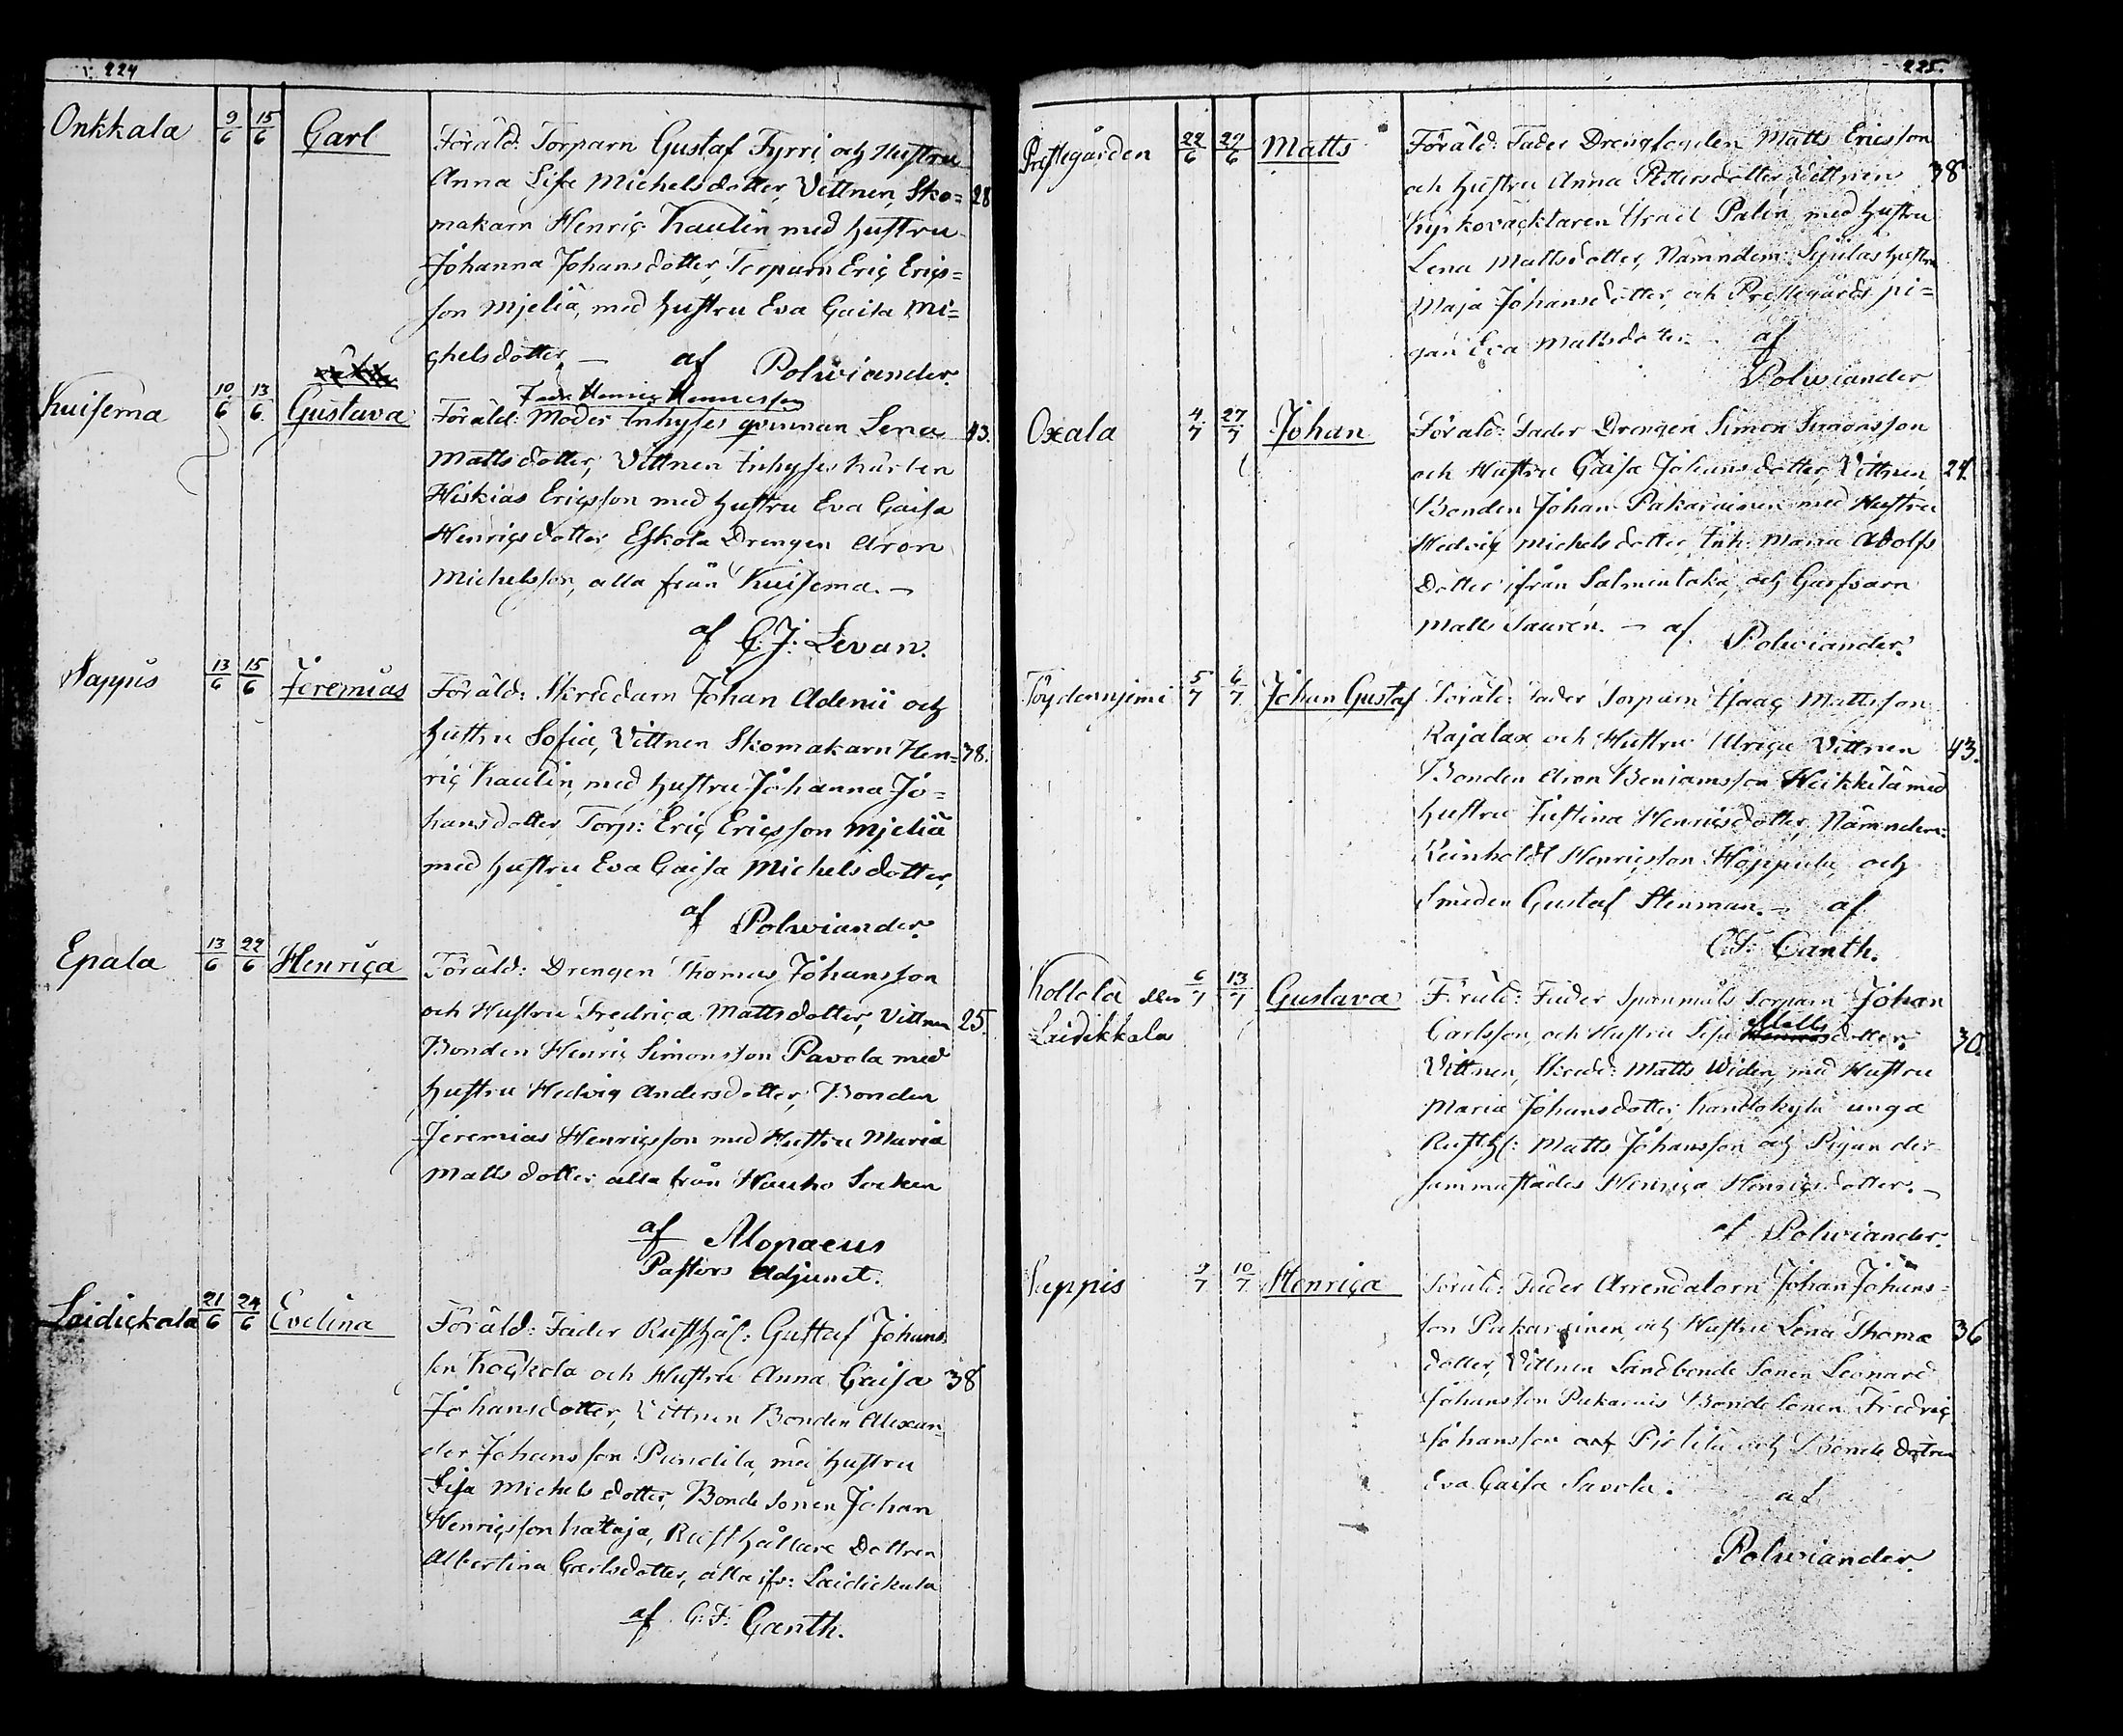 224
Onkkala 9/6 15/6 Carl Föräld: Torparn Gustaf Tyrri och Hustru
Anna Lisa Michelsdotter, Vittnen, Sko= 28
makarn Henric Kaulin med hustru
Johanna Johansdotter, Torparn Eric Erics=
son Mjeliä, med hustru Eva Caisa Mi=
chelsdotter, — af Polviander.
Fadr. Henric Hennesson
Kuisema 10/6 13/6 Gustava Föräld: Moder Inhyses qvinnan Lena 43.
Matts dotter, Vittnen Inhyses Karlen
Hiskias Ericsson med hustru Eva Caisa
Henricsdotter, Eskola Drengen Aron
Michelsson, alla från Kuisema. —
af C. J. Levan.
Nappis 13/6 15/6 Jeremias Föräld: Skreddarn Johan Adenii och
hustru Sofia, Vittnen Skomakarn Hen= 38.
ric Kaulin, med hustru Johanna Jo=
hansdotter Torp: Eric Ericsson Mjeliä
med hustru Eva Caisa Michelsdotter,
af Polviander.
Epala 13/6 22/6 Henrica Föräld: Drengen Thomas Johansson
och Hustru Fredrica Mattsdotter, Vittnen 25.
Bonden Henric Simonsson Pavola med
hustru Hedvig Andersdotter, Bonden
Jeremias Henricsson med Hustru Maria
Matts dotter alla från Hauho Socken
af Alopaeus
Pastors Adjunct.
Laidickala 21/6 24/6 Evelina Föräld: Fader Rusthål: Gustaf Johans
son Kockola och Hustru Anna Caisa 38
Johansdotter, Vittnen Bonden Alexan
der Johansson Pundila, med hustru
Lisa Michels dotter, Bonde Sonen Johan
Henricsson Kattaja, Rusthållare Dottren
Albertina Carlsdotter, alla ifr: Laidickala
af C. F. Canth.
225.
Prestegården 22/6 27/6 Matts Föräld: Fader Drengkarlen Matts Ericsson
och hustru Anna Pettersdotter, Vittnen 38
Kyrkoväcktaren Israel Palin med hustru
Lena Mattsdotter, Nämndem: Sipilas hustru
Maja Johansdotter, och Prestegårds pi=
gan Eva Mattsdotter. af
Polviander
Oxala 4/7 27/7 Johan Föräld: Fader Drengen Simon Simonsson
och Hustru Caisa Johansdotter, Vittnen, 24.
Bonden Johan Pakarainen med Hustru
Hedvig Michelsdotter, Inh: Maria Adolfs
Dotter ifrån Salmentaka, och Garfvarn
Matts Saurén. — af Polviander.
Töydenniemi 5/7 6/7 Johan Gustaf Föräld: Fader Torparn Isaac Mattsson
Rajalax och Hustru Ulrica Vittnen 43.
Bonden Aron Beniamsson Heikkilä med
hustru Justina Henricsdotter, Nämndem:
Reinholdt Henricsson Hoppula, och
Smeden Gustaf Stenman. — af
C. F. Canth.
Kollola eller 6/7 13/7 Gustava Föräld: Fader Spanmåls Torparn Johan
Laidikkala Carlsson, och Hustru Lisa Matts dotter. 30.
Vittnen, Skred: Matts Widen, med Hustru
Maria Johansdotter, Kantokylä unga
Rusth: Matts Johansson och Pigan der
sammastädes Henrica Henricsdotter. —
af Polviander.
Seppis 9/7 10/7 Henrica Föräld: Fader Arrendatorn Johan Johans=
son Pakarainen, och Hustru Lena Thoma 36
dotter, Vittnen Landbonde Sonen Leonard
Johansson Pakarnis Bonde Sonen Fredric
Johansson och Pietilä och Bonde dottren
Eva Caisa Savola. af
Polviander.